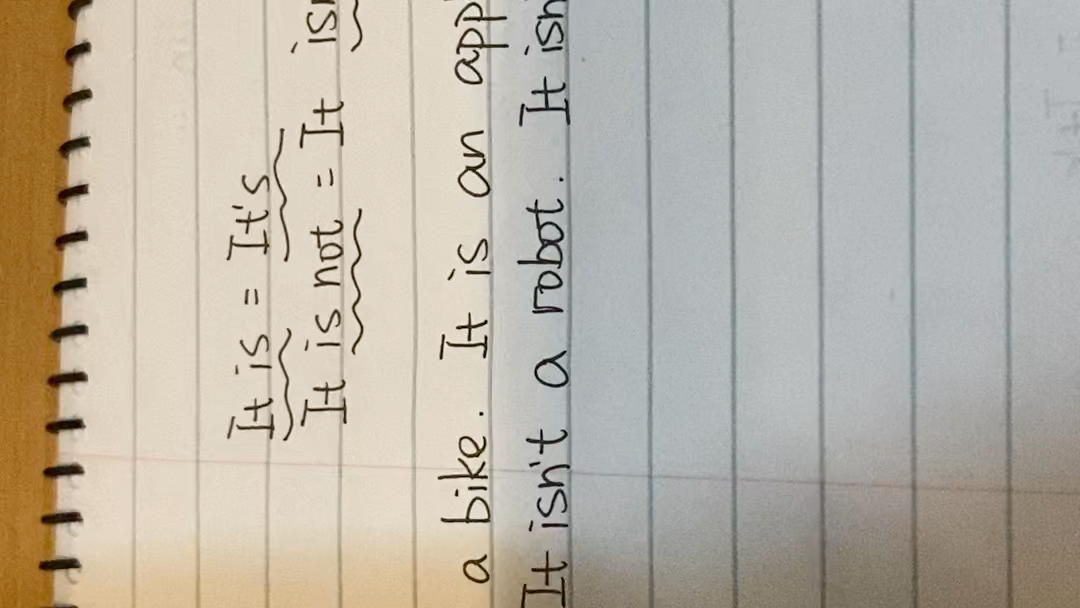 It is = It's
It is not = It
a bike. It is an
It isn't a robot. It